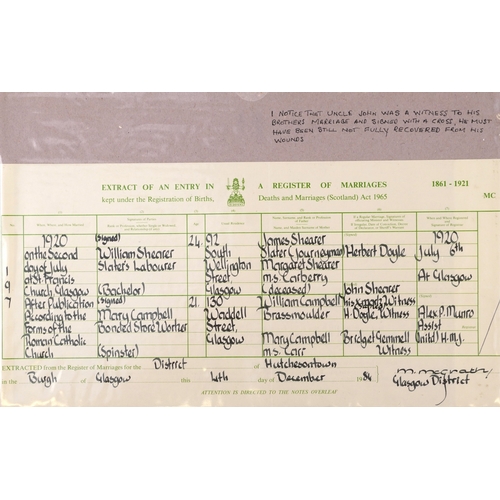 I NOTICE THAT UNCLE JOHN WAS A WITNESS TO HIS
BROTHERS MARRIAGE AND SIGNED WITH A CROSS, HE MUST
HAVE BEEN STILL NOT FULLY RECOVERED FROM HIS
WOUNDS
EXTRACT OF AN ENTRY IN A REGISTER OF MARRIAGES 1861 - 1921
kept under the Registration of Births, Deaths and Marriages (Scotland) Act 1965
MC
No.
197
1920
on the Second
day of July
at St. Francis
Church, Glasgow
After Publication
According to the
Forms of the
Roman Catholic
Church
(Signed)
William Shearer
Slater's Labourer
(Bachelor)
(signed)
Mary Campbell
Bonded Store Worker
(Spinster)
24
21
92
South
Wellington
Street,
Glasgow
130
Waddell
Street,
Glasgow
James Shearer
Slater (Journeyman)
Margaret Shearer
m.s. Carberry
(deceased)
William Campbell
Brassmoulder
Mary Campbell
m.s. Carr
Herbert Doyle
John Shearer
his x mark Witness
H. Doyle, Witness
Bridget Gemmell
Witness
1920
July 6th
At Glasgow
Alex P. Munro
Assist
(Initd) H.M.J.
EXTRACTED from the Register of Marriages for the District of Hutchesontown
in the Burgh of Glasgow this 4th day of December 1984
M. McGrath
Glasgow District
ATTENTION IS DIRECTED TO THE NOTES OVERLEAF